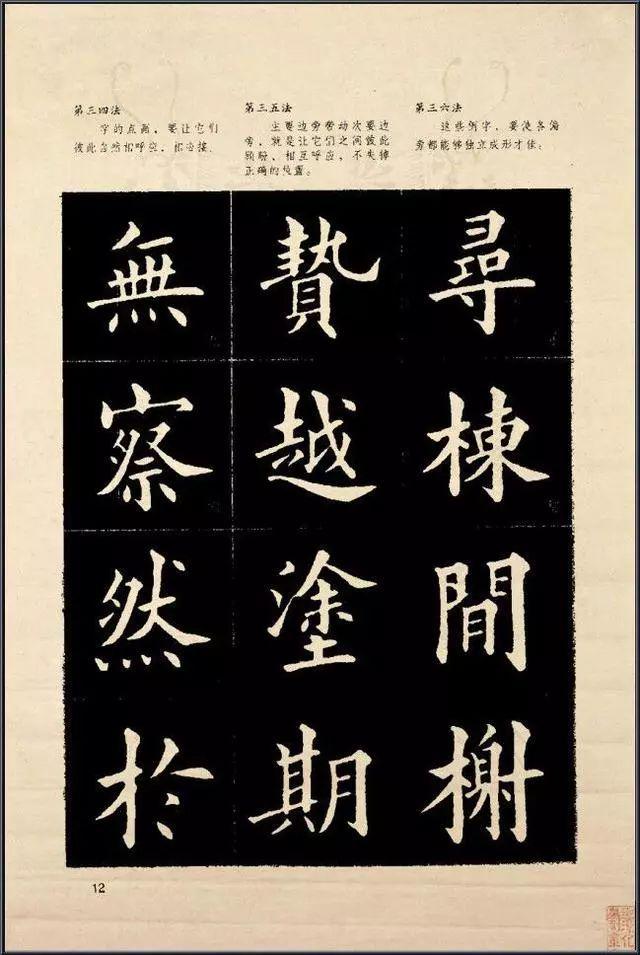 第三四法
字的点画，要让它们
彼此自然相呼应，相连接．
第三五法
主要边旁带动次要边
旁，就是让它们之间彼此
顾盼、相互呼应，不失掉
正确的位置。
第三六法
这些例字，要使各偏
旁都能够独立成形才佳。
無
察
然
於
贄
越
塗
期
尋
棟
間
榭
12